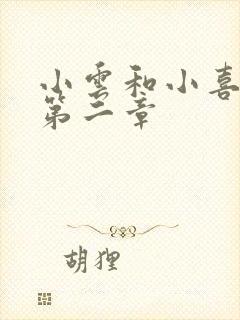 小雲和小喜
第二章
胡狸